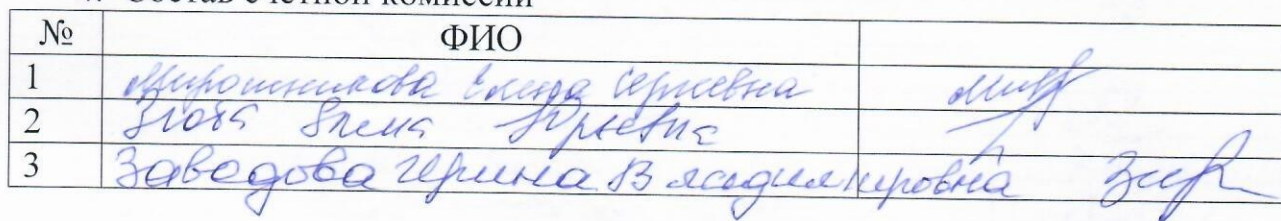 Состав счетной комиссии
№ ФИО
1 Мирошникова Елена Сергеевна
2 Юрьевна
3 Заводова Ирина Владимировна